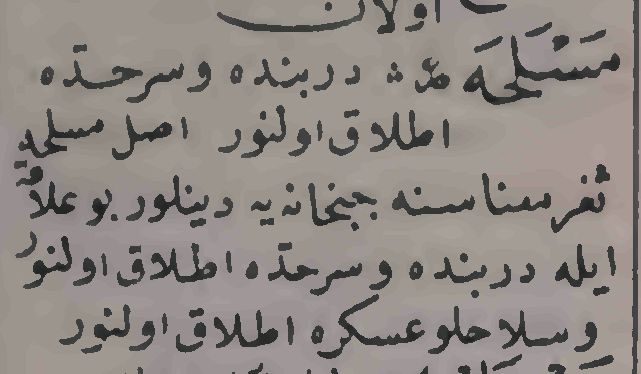 اولان
مَسْلَحَه در بنده و سرحدّه
اطلاق اولنور اصل مسلحه
ثغر معناسنه جبخانه یه دینلور بو علاقه
ایله در بنده و سرحدّه اطلاق اولنور
و سلاحلو عسکره اطلاق اولنور